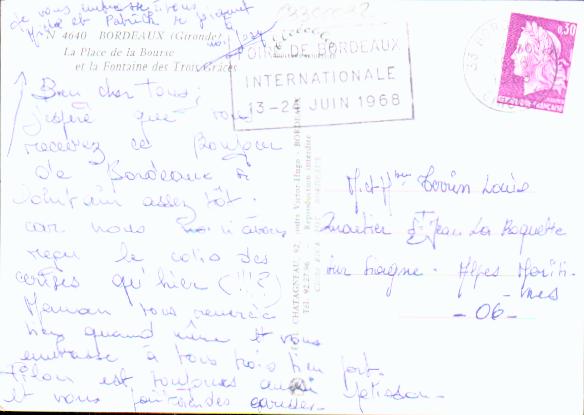 je vous embrasse tous
et Patrick se joignent
N 4640 BORDEAUX (Gironde)
La Place de la Bourse
et la Fontaine des Trois Grâces
Bien chers tous,
j'espère que vous
recevrez ce Bonjour
de Bordeaux &
assez tôt.
car nous n'avons
reçu le colis des
cerises qu'hier (!!?)
Maman vous remercie
bien quand même et vous
embrasse à tous trois bien fort.
est toujours aussi polisson
et vous caresses
FOIRE DE BORDEAUX
INTERNATIONALE
13-24 JUIN 1968
0,30
CHATAGNEAU, 92, Victor-Hugo - BORDEAUX
Tél. 92.22.96
Reproduction interdite
M. et Mme Louis
Quartier St Jean La Roquette
sur Siagne. Alpes Mariti-
mes
- 06 -